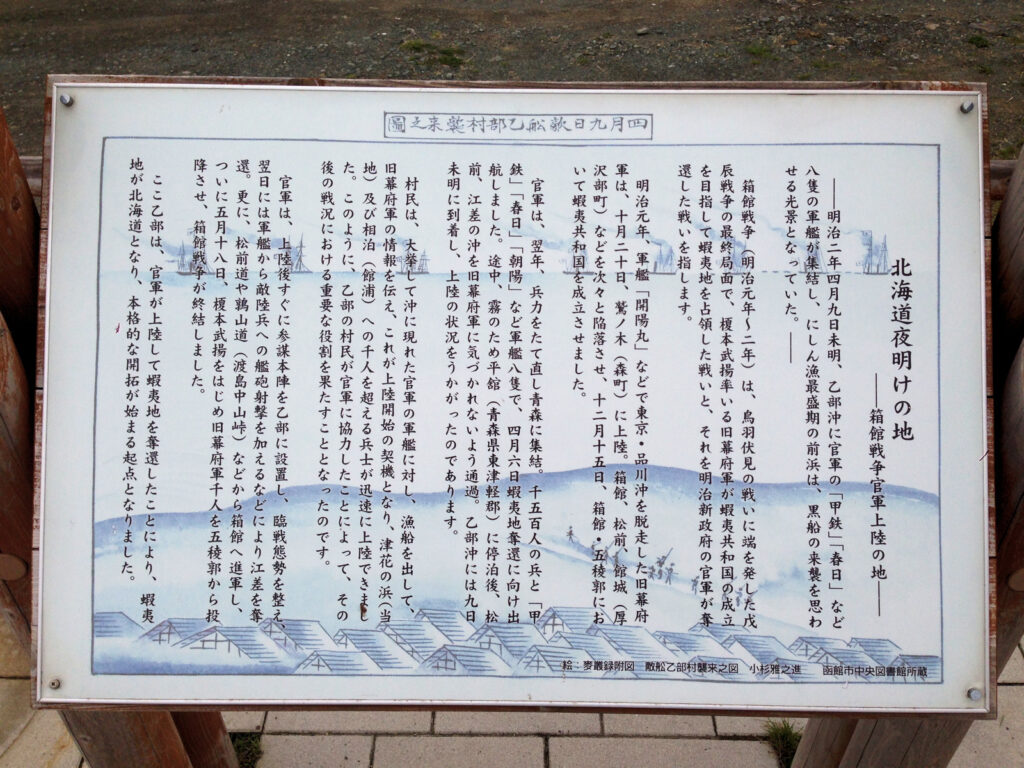 四月九日敵舩乙部村襲来之圖
北海道夜明けの地
――箱館戦争官軍上陸の地――
――明治二年四月九日未明、乙部沖に官軍の「甲鉄」「春日」など
八隻の軍艦が集結し、にしん漁最盛期の前浜は、黒船の来襲を思わ
せる光景となっていた。――
箱館戦争（明治元年～二年）は、鳥羽伏見の戦いに端を発した戊
辰戦争の最終局面で、榎本武揚率いる旧幕府軍が蝦夷共和国の成立
を目指して蝦夷地を占領した戦いと、それを明治新政府の官軍が奪
還した戦いを指します。
明治元年、軍艦「開陽丸」などで東京・品川沖を脱走した旧幕府
軍は、十月二十日、鷲ノ木（森町）に上陸。箱館、松前、館城（厚
沢部町）などを次々と陥落させ、十二月十五日、箱館・五稜郭にお
いて蝦夷共和国を成立させました。
官軍は、翌年、兵力をたて直し青森に集結。千五百人の兵と「甲
鉄」「春日」「朝陽」など軍艦八隻で、四月六日蝦夷地奪還に向け出
航しました。途中、霧のため平館（青森県東津軽郡）に停泊後、松
前、江差の沖を旧幕府軍に気づかれないよう通過。乙部沖には九日
未明に到着し、上陸の状況をうかがったのであります。
村民は、大挙して沖に現れた官軍の軍艦に対し、漁船を出して、
旧幕府軍の情報を伝え、これが上陸開始の契機となり、津花の浜（当
地）及び相泊（館浦）への千人を超える兵士が迅速に上陸できまし
た。このように、乙部の村民が官軍に協力したことによって、その
後の戦況における重要な役割を果たすこととなったのです。
官軍は、上陸後すぐに参謀本陣を乙部に設置し、臨戦態勢を整え、
翌日には軍艦から敵陸兵への艦砲射撃を加えるなどにより江差を奪
還。更に、松前道や鶉山道（渡島中山峠）などから箱館へ進軍し、
ついに五月十八日、榎本武揚をはじめ旧幕府軍千人を五稜郭から投
降させ、箱館戦争が終結しました。
ここ乙部は、官軍が上陸して蝦夷地を奪還したことにより、蝦夷
地が北海道となり、本格的な開拓が始まる起点となりました。
絵：麥叢録附図　敵舩乙部村襲来之図　小杉雅之進　函館市中央図書館所蔵